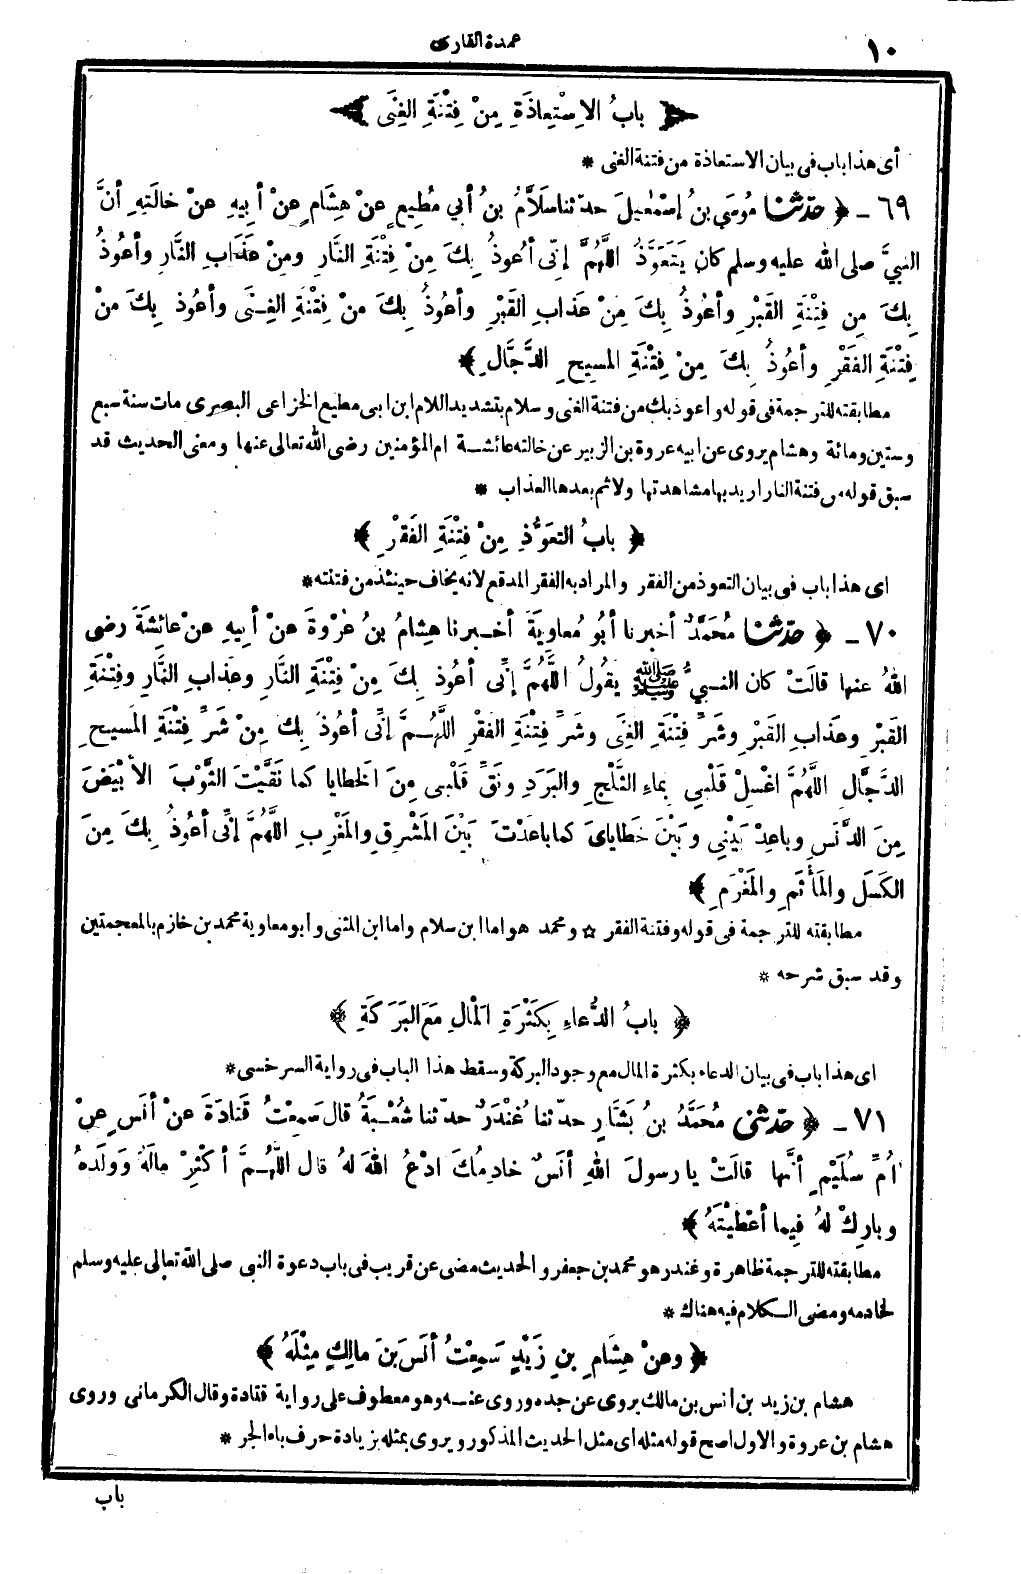 ١٠
عمدة القارى
﴿ بابُ الاِسْتِعاذَةِ مِنْ فِتْنَةِ الغِنَى ﴾
أى هذا باب فى بيان الاستعاذة من فتنة الغنى *
٦٩ - ﴿ حدّثنا مُوسَى بنُ إسْمٰعِيلَ حدّثنا سَلاَّمُ بنُ أبي مُطِيعٍ عنْ هِشامٍ عنْ أبِيهِ عنْ خالَتِهِ أنَّ
النبيَّ صلى الله عليه وسلم كان يَتَعَوَّذُ اللَّهُمَّ إنِّى أعُوذُ بِكَ مِنْ فِتْنَةِ النَّارِ ومِنْ عَذَابِ النَّارِ وأعُوذُ
بِكَ مِن فِتْنَةِ القَبْرِ وأعُوذُ بِكَ مِنْ عَذابِ القَبْرِ وأعُوذُ بِكَ مِنْ فِتْنَةِ الغِنَى وأعُوذ بِكَ مِنْ
فِتْنَةِ الفَقْرِ وأعُوذُ بِكَ مِنْ فِتْنَةِ المَسِيحِ الدَّجَّالِ ﴾
مطابقته للترجمة فى قوله واعوذ بك من فتنة الغنى وسلام بتشديد اللام ابن ابى مطيع الخزاعى البصرى مات سنة سبع
وستين ومائة وهشام يروى عن ابيه عروة بن الزبير عن خالته عائشة ام المؤمنين رضى الله تعالى عنها ومعنى الحديث قد
سبق قوله من فتنة النار اريد بها مشاهدتها ولا ثم بعدها العذاب *
﴿ بابُ التعَوُّذِ مِنْ فِتْنَةِ الفَقْرِ ﴾
اى هذا باب فى بيان التعوذ من الفقر والمراد به الفقر المدقع لانه يخاف حينئذ من فتنته *
٧٠ - ﴿ حدّثنا مُحَمَّدٌ أخبرنا أبُو مُعاويَةَ أخبرنا هِشامُ بنُ عُرْوَةَ عنْ أبِيهِ عنْ عائِشَةَ رضى
اللهُ عنها قالَتْ كان النبيُّ ﷺ يَقُولُ اللَّهُمَّ إنِّى أعُوذ بِكَ مِنْ فِتْنَةِ النَّارِ وعَذابِ النَّارِ وفِتْنَةِ
القَبْرِ وعَذابِ القَبْرِ وشَرِّ فِتْنَةِ الغِنَى وشَرِّ فِتْنَةِ الفَقْرِ اللَّهُمَّ إنِّى أعُوذُ بِكَ مِنْ شَرِّ فِتْنَةِ المَسِيحِ
الدَّجَّالِ اللَّهُمَّ اغْسِلْ قَلْبِي بِماءِ الثَّلْجِ والبَرَدِ ونَقِّ قَلْبى مِنَ الخَطايا كما نَقَّيْتَ الثَّوْبَ الأبْيَضَ
مِنَ الدَّنَسِ وباعِدْ بَيْنِي وبَيْنَ خَطاياىَ كما باعَدْتَ بَيْنَ المَشْرِقِ والمَغْرِبِ اللَّهُمَّ إنِّى أعُوذُ بِكَ مِنَ
الكَسَلِ والمَأْثَمِ والمَغْرَمِ ﴾
مطابقته للترجمة فى قوله وفتنة الفقر * ومحمد هو اما ابن سلام واما ابن المثنى وأبو معاوية محمد بن خازم بالمعجمتين
وقد سبق شرحه *
﴿ بابُ الدُّعاءِ بِكَثْرَةِ المالِ مَعَ البَرَكَةِ ﴾
اى هذا باب فى بيان الدعاء بكثرة المال مع وجود البركة وسقط هذا الباب فى رواية السرخسى *
٧١ - ﴿ حدّثنى مُحَمَّدُ بنُ بَشَّارٍ حدّثنا غُنْدَرٌ حدّثنا شُعْبَةُ قال سَمِعْتُ قَتادَةَ عنْ أنَسٍ عنْ
اُمِّ سُلَيْمٍ أنَّها قالَتْ يا رسولَ اللهِ أنَسٌ خادِمُكَ ادْعُ اللهَ لهُ قال اللَّهُمَّ أكْثِرْ مالَهُ وَوَلَدَهُ
وبارِكْ لهُ فِيما أعْطَيْتَهُ ﴾
مطابقته للترجمة ظاهرة وغندر هو محمد بن جعفر والحديث مضى عن قريب فى باب دعوة النبى صلى الله تعالى عليه وسلم
لخادمه ومضى الكلام فيه هناك *
﴿ وعنْ هِشامِ بنِ زَيْدٍ سَمِعْتُ أنَسَ بنَ مالِكٍ مِثْلَهُ ﴾
هشام بن زيد بن أنس بن مالك يروى عن جده وروى عنه وهو معطوف على رواية قتادة وقال الكرمانى وروى
هشام بن عروة والاول اصح قوله مثله اى مثل الحديث المذكور ويروى بمثله بزيادة حرف باء الجر *
باب